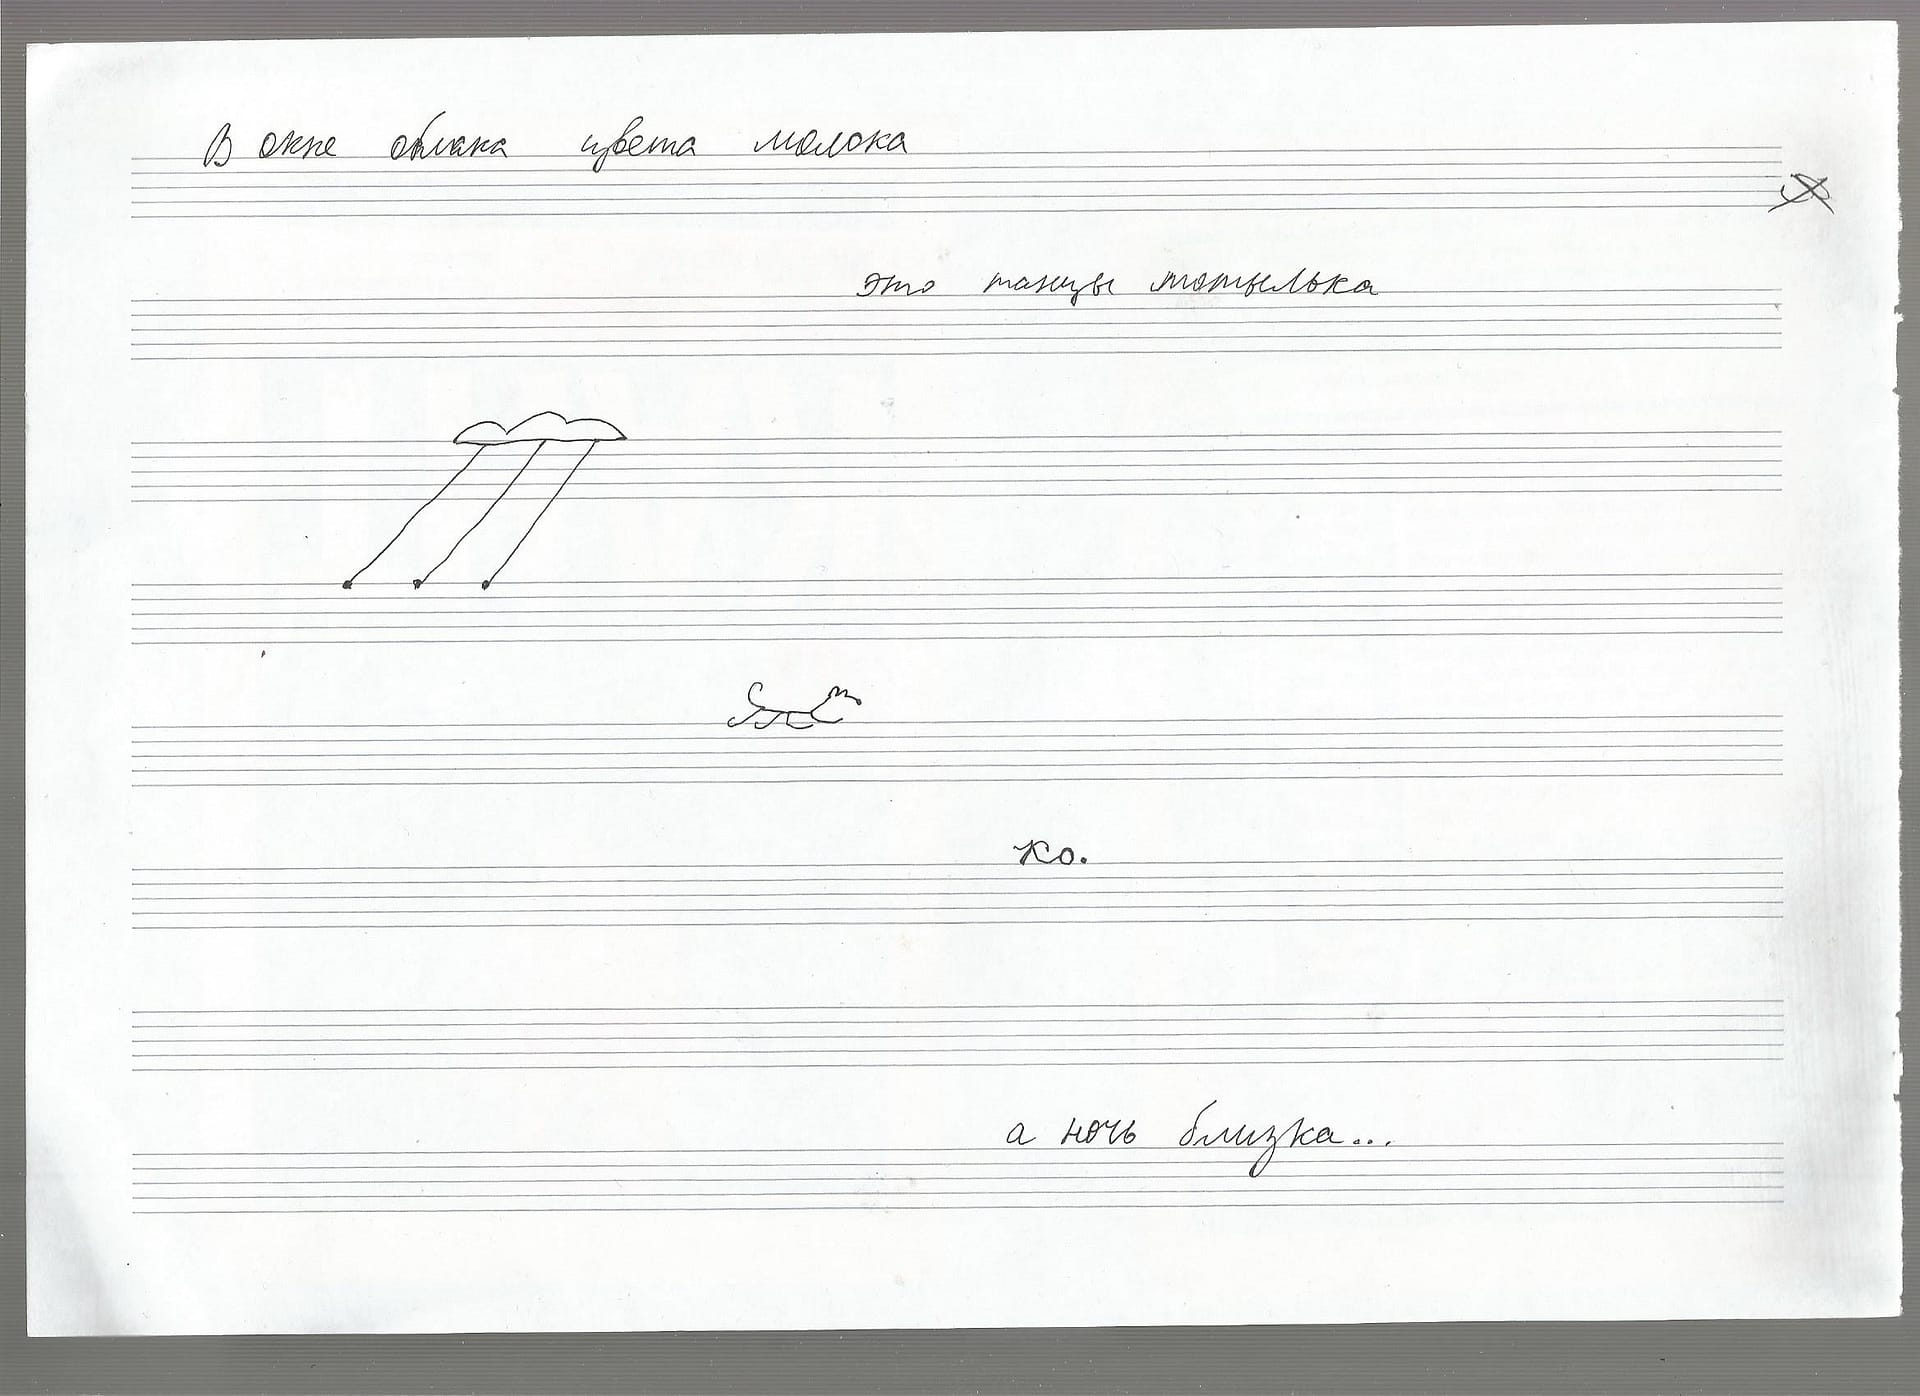 В окне облака цвета молока
это танцы мотылька
ко.
а ночь близка...